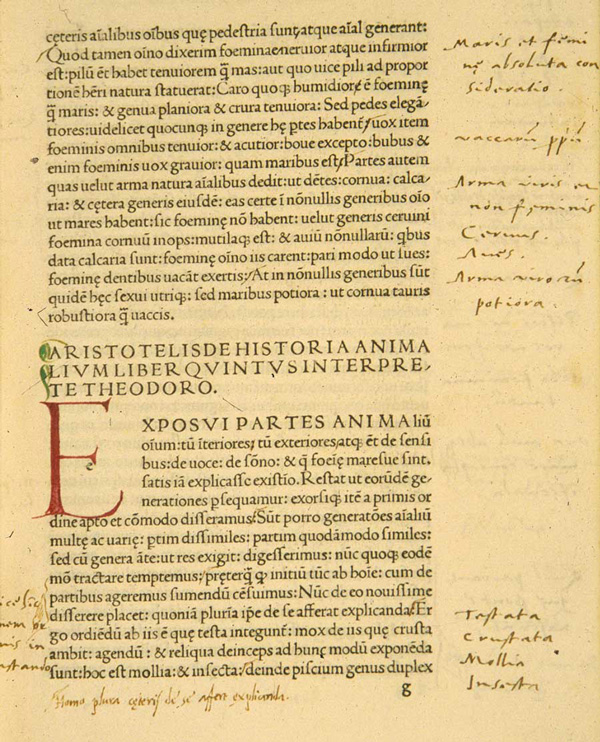 cęteris aīalibus oībus quę pedestria sunt, atque aīal generant:
Quod tamen oīno dixerim foeminae neruior atque infirmior
est: pilū ēt habet tenuiorem q̄ mas: aut quo uice pili ad propor
tionē hēri natura statuerat: Caro quoq; humidior/ ē foeminę
q̄ maris: & genua planiora & crura tenuiora: Sed pedes elegā-
tiores: uidelicet quocunq; in genere hę ptes habent/ uox item
foeminis omnibus tenuior: & acutior: boue excepto: bubus &
enim foeminis uox grauior: quam maribus est/ Partes autem
quas uelut arma natura aīalibus dedit: ut dētes: cornua: calca-
ria: & cętera generis eiusdē: eas certe ī nōnullis generibus oīo
ut mares habent: sic foeminę nō habent: uelut generis ceruini
foemina cornuū inops: mutilaq; est: & auiū nōnullarū: qbus
data calcaria sunt: foeminę oīno iis carent: pari modo ut sues:
foeminę dentibus uacāt exertis/ At in nōnullis generibus sūt
quidē hęc sexui utriq;: sed maribus potiora: ut cornua tauris
robustiora q̄ uaccis.
Maris et femi
nę absoluta con
sideratio.
vaccarū
Arma viris
non fęminis
Ceruus.
Aues.
Arma viro
potiora.
ARISTOTELIS DE HISTORIA ANIMA
LIVM LIBER QVINTVS INTERPRE-
TE THEODORO.
EXPOSVI PARTES ANIMAliū
oīum: tū īteriores, tū exteriores, atq; ēt de sensi
bus: de uoce: de sōno: & q̄ foeīę maresue sint.
satis iā explicasse existīo. Restat ut eorūdē ge-
nerationes psequamur: exorsiq; itē a primis or
dine apto et cōmodo disseramus/ Sūt porro generatōes aīaliū
multę ac uarię: ptim dissimiles: partim quodāmodo similes:
sed cū genera āte: ut res exigit: digesserimus: nūc quoq; eodē
mō tractare temptemus/ pręterq̄ q initiū tūc ab hoīe: cum de
partibus ageremus sumendū cēsuimus: Nūc de eo nouissime
disserere placet: quoniā pluria ipe de se afferat explicanda/ Er
go ordiēdū ab iis ē quę testa integunt: mox de iis que crusta
ambit: agendū: & reliqua deinceps ad hunc modū exponēda
sunt: hoc est mollia: & insecta/ deinde piscium genus duplex
Testata
Crustata
Mollia
Insecta
Homo plura cęteris de se affert explicanda.
g